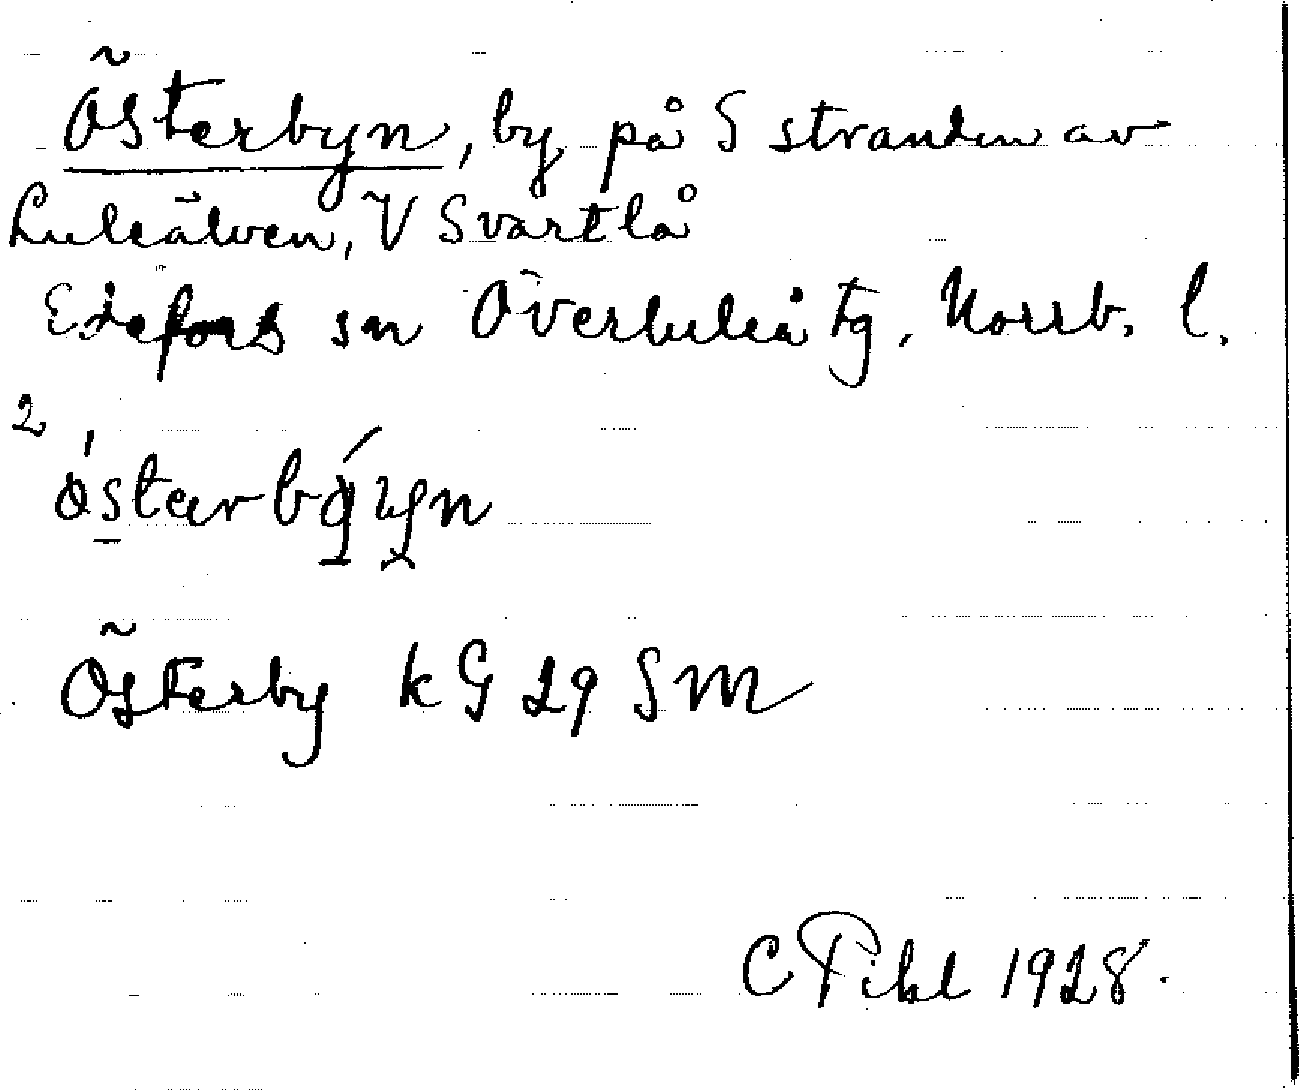 Österbyn, by på S stranden av
Luleälven, V Svartlå
Edefors sn Överluleå tg, Norrb. l.
2
Österby kG 29 SM
C Pihl 1928.